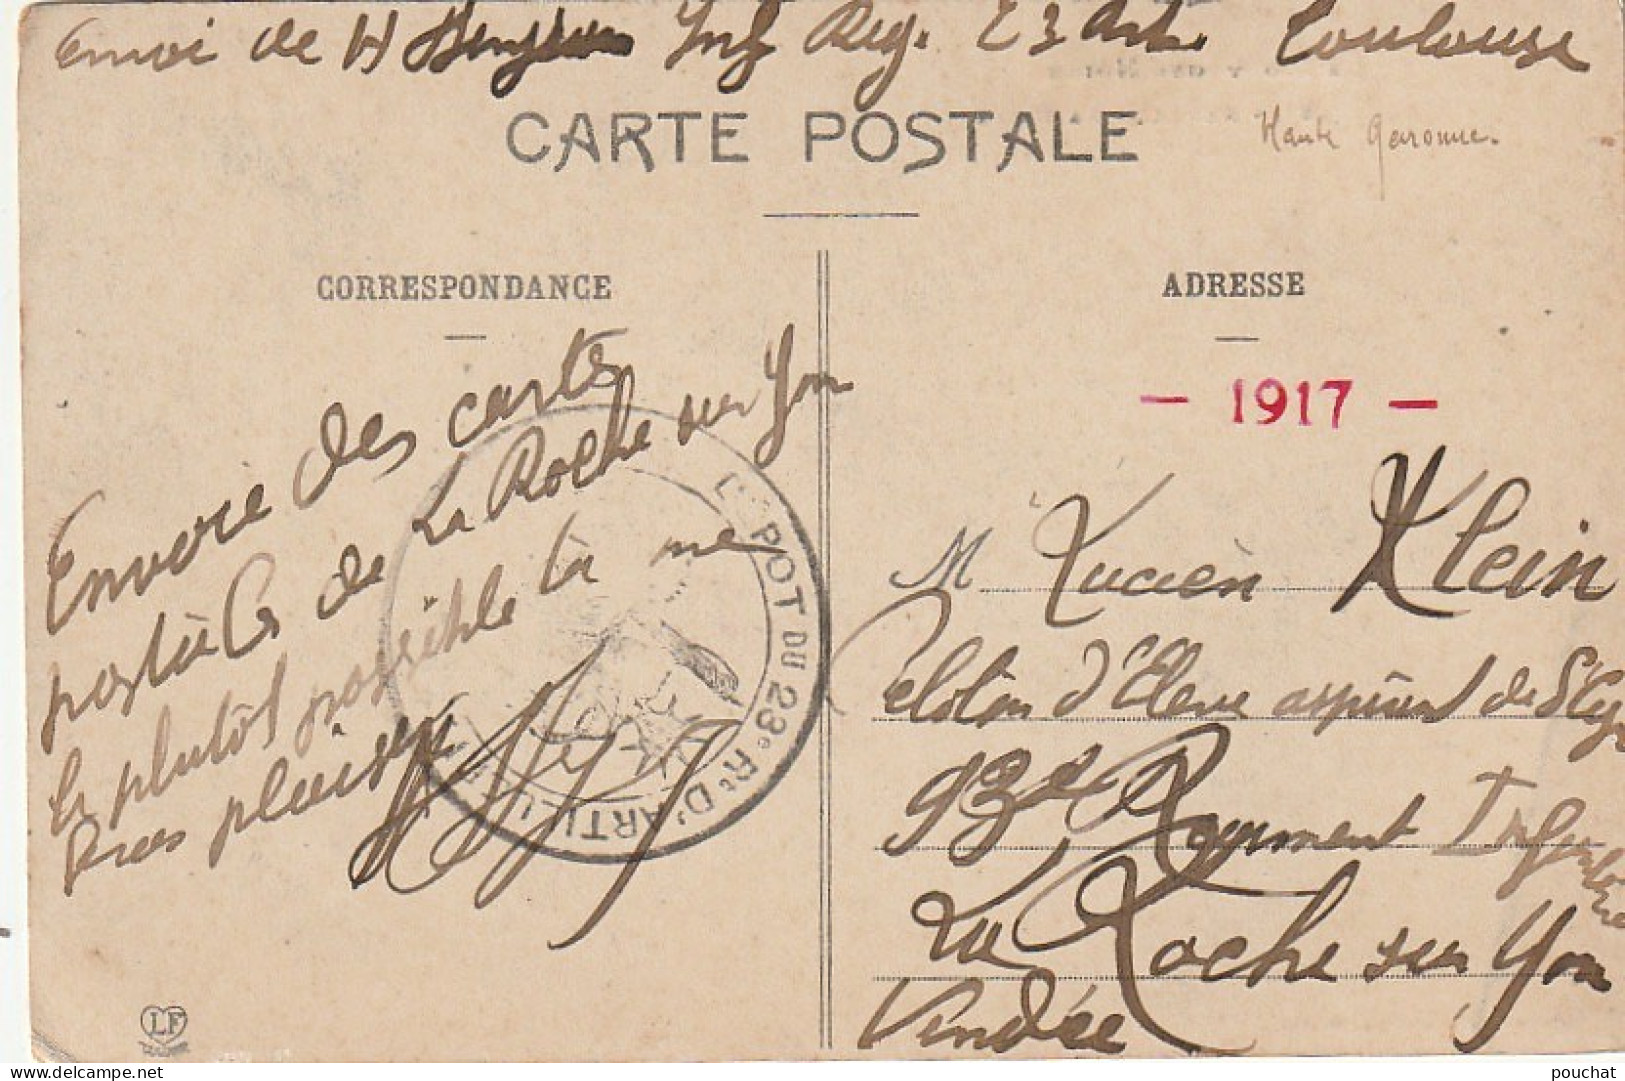 Envoi de H Inf Reg. 23 Art. Toulouse
Haute Garonne.
CARTE POSTALE
CORRESPONDANCE
Envoie des cartes
postales de La Roche sur Yon
le plutôt possible la me
feras plaisir
DEPOT DU 23e Rt D'ARTILLERIE
LF
ADRESSE
- 1917 -
M Lucien Klein
Peloton d'Eleve aspirant de St Cyr
93e Regiment Infanterie
La Roche sur Yon
Vendée
pouchat